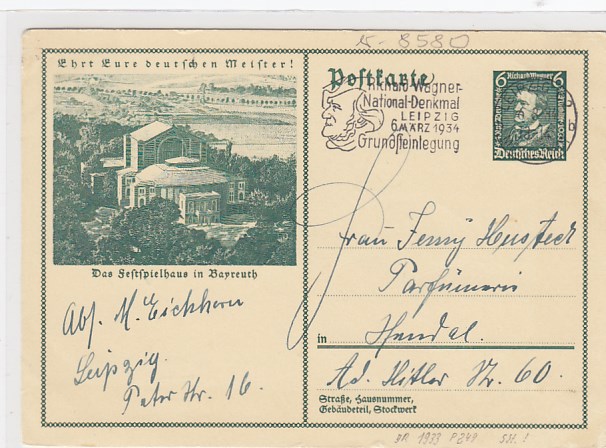 K-8580
Ehrt Eure deutschen Meister!
Postkarte
Richard-Wagner-
National-Denkmal
LEIPZIG
6. MÄRZ 1934
Grundsteinlegung
6 Richard Wagner 6
Deutsches Reich
Das Festspielhaus in Bayreuth
Abs. M. Eichhorn
Leipzig.
Peter Str. 16.
Frau Jenny
Parfümerie
in
Ad. Hitler Str. 60.
Straße, Hausnummer,
Gebäudeteil, Stockwerk
DR 1933 P 249